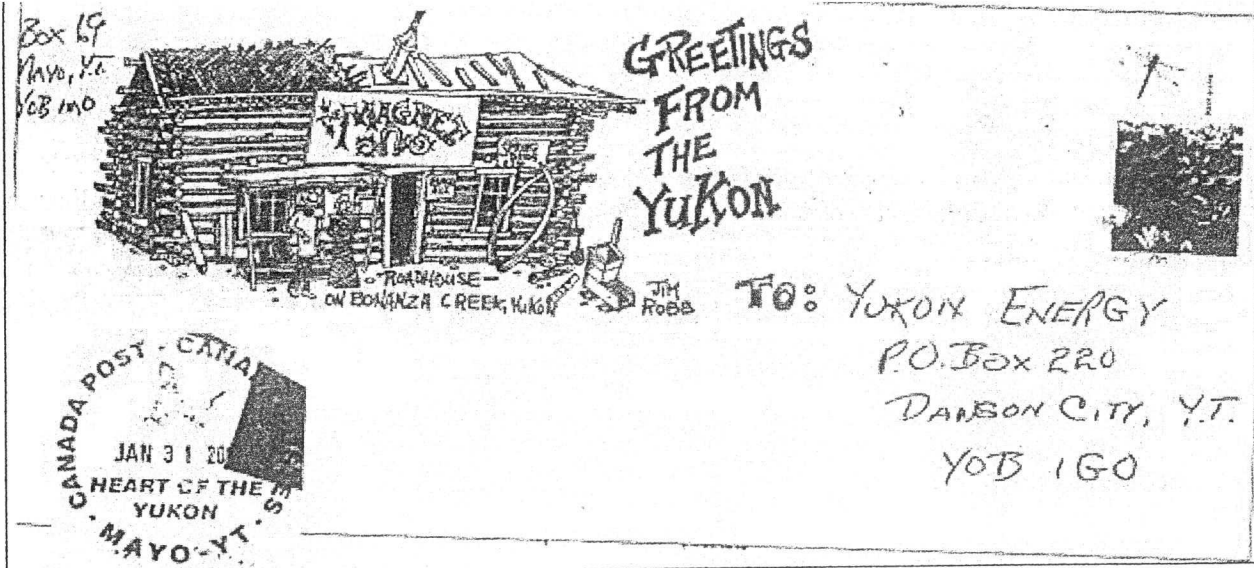 Box 69
Mayo, Y.T.
YOB 1M0
MAGNET
GREETINGS
FROM
THE
YUKON
ROADHOUSE
ON BONANZA CREEK, YUKON
JIM
ROBB
TO: YUKON ENERGY
P.O. Box 220
DAWSON CITY, Y.T.
YOB 1G0
CANADA POST · CANA
JAN 31 20
HEART OF THE
YUKON
MAYO - YT